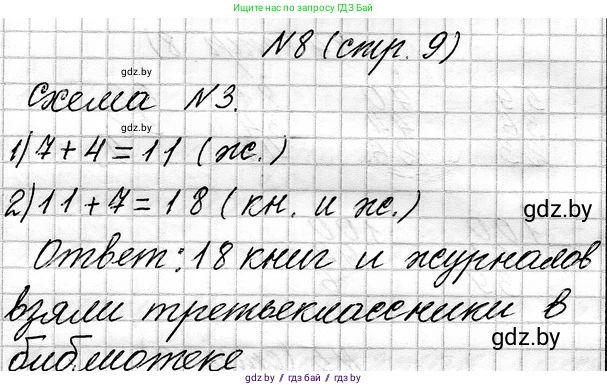 Больше решебников
приложении ГДЗ Бай
Ищите нас в
N8 (стр. 9)
gdz.by
Схема N3.
gdz.by
1) 7+4=11 (ж.)
2) 11+7=18 (кн. и ж.)
gdz.by
Ответ: 18 книг и журналов
взяли третьеклассники в
gdz.by
библиотеке
gdz.by / гдз бай / gdz by